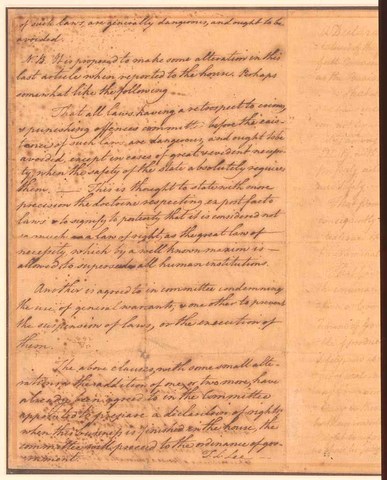 of such laws, are generally dangerous, and ought to be
avoided.
N.B. It is proposed to make some alteration in this
last article when reported to the house. Perhaps
somewhat like the following
That all laws having a retrospect to crimes,
& punishing offences committed before the exis-
tence of such laws, are dangerous, and ought to be
avoided, except in cases of great & evident necessi-
ty, when the safety of the State absolutely requires
them. — This is thought to state with more
precision the doctrine respecting ex post facto
laws & to signify to posterity that it is considered not
so much as a law of right, as the great law of
necessity, which by a well known maxim is —
allowed to supersede all human institutions.
Another is agreed to in committee condemning
the use of general warrants; & one other to prevent
the suspension of laws, or the execution of
them.
The above clauses, with some small alte-
rations, & the addition of one or two more, have
already been agreed to in the Committee
appointed to prepare a declaration of rights;
when this business is finished in the house, the
committee will proceed to the ordinance of gov-
ernment.
T. L. Lee